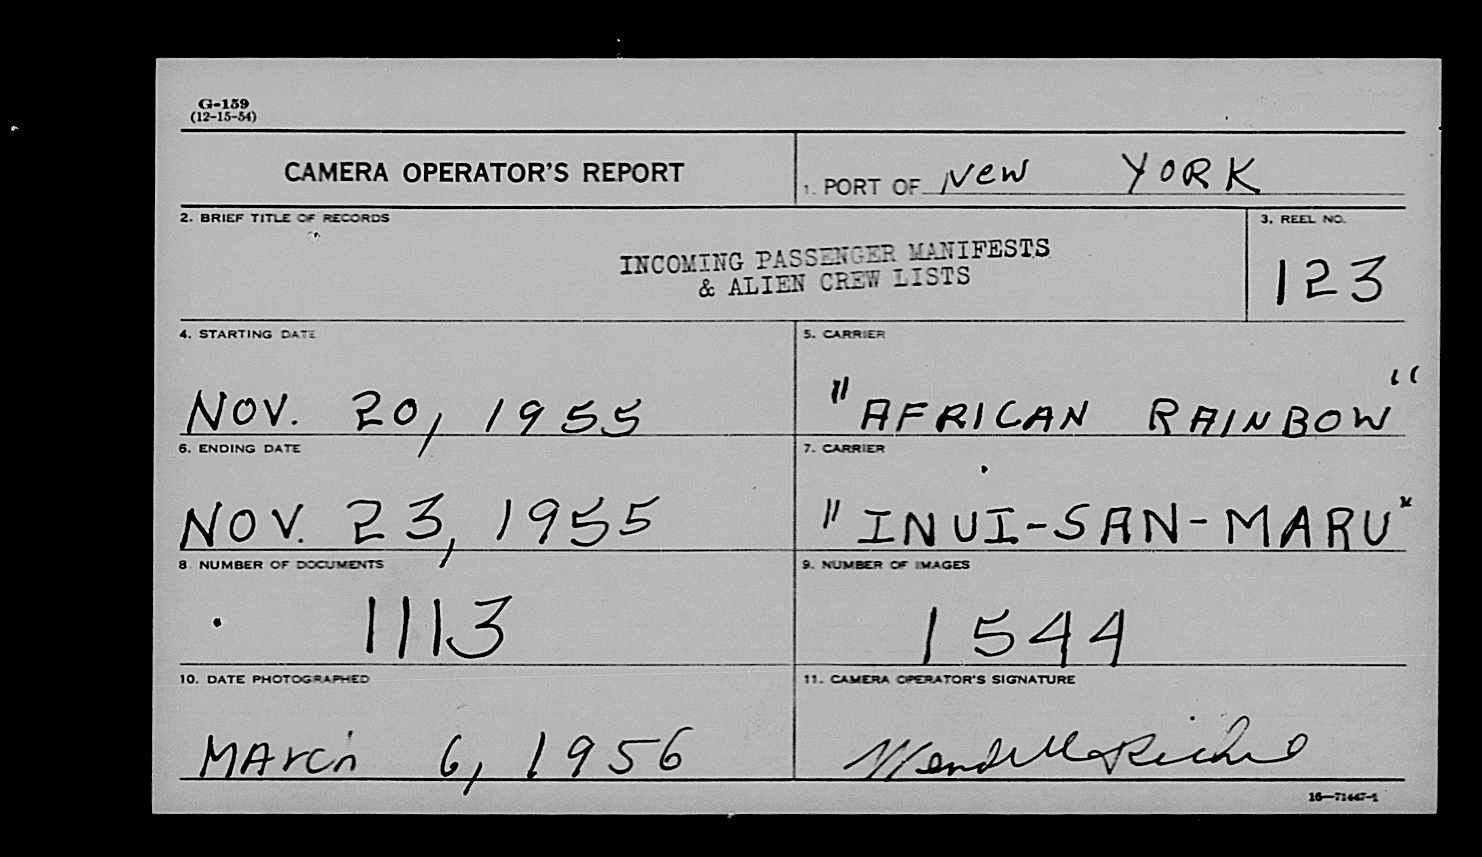 G-159
(12-15-54)
CAMERA OPERATOR'S REPORT
1. PORT OF New YORK
2. BRIEF TITLE OF RECORDS
INCOMING PASSENGER MANIFESTS
& ALIEN CREW LISTS
3. REEL NO.
123
4. STARTING DATE
NOV. 20, 1955
5. CARRIER
"AFRICAN RAINBOW"
6. ENDING DATE
NOV. 23, 1955
7. CARRIER
"INUI-SAN-MARU"
8 NUMBER OF DOCUMENTS
1113
9. NUMBER OF IMAGES
1544
10. DATE PHOTOGRAPHED
MArch 6, 1956
11. CAMERA OPERATOR'S SIGNATURE
Wendell
16—71447-1